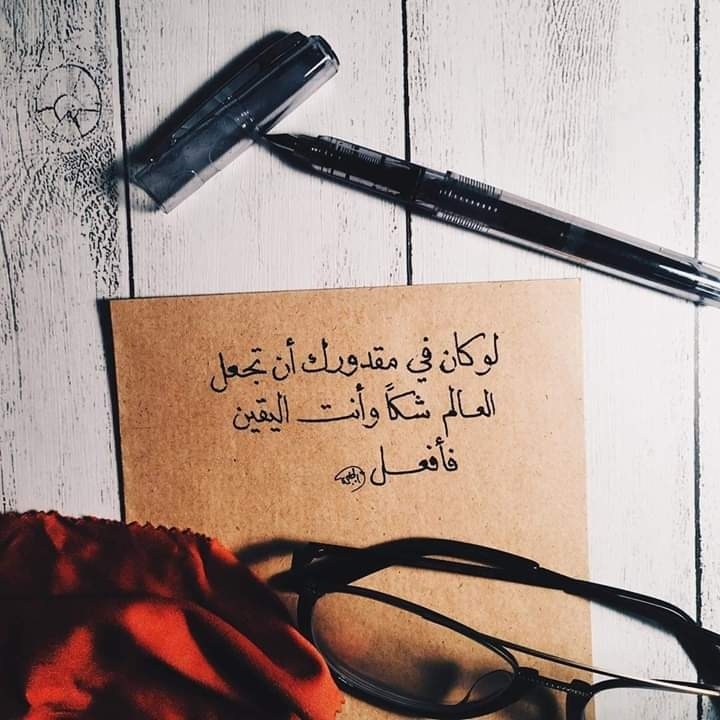 لو كان في مقدورك أن تجعل
العالم شكاً وأنت اليقين
فأفعل